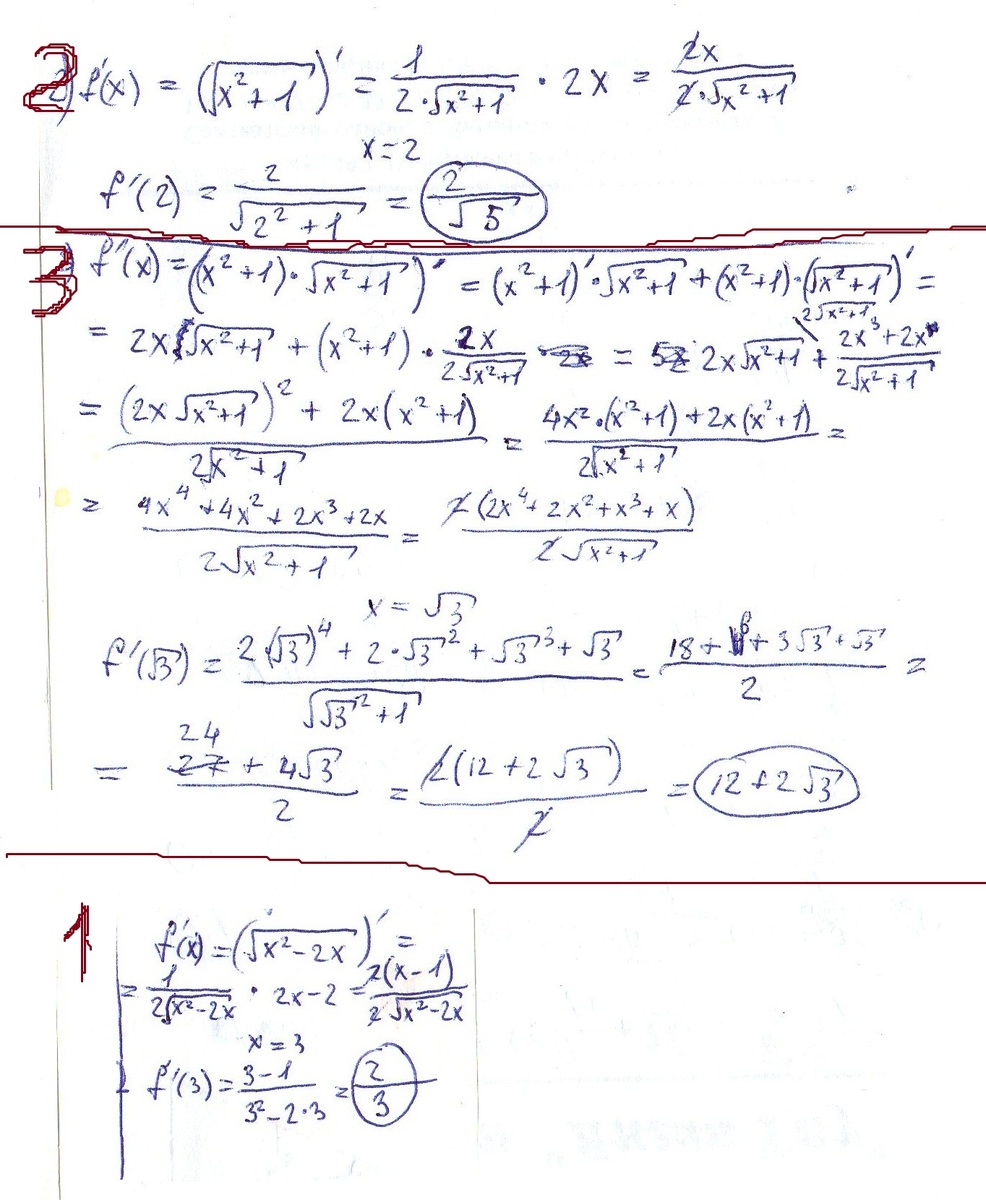 2) f'(x) = (√(x²+1))' = 1/(2·√(x²+1)) · 2x = 2x/(2·√(x²+1))
x=2
f'(2) = 2/√(2²+1) = 2/√5
3 f'(x) = ((x²+1)·√(x²+1))' = (x²+1)'·√(x²+1) + (x²+1)·(√(x²+1))' =
2√(x²+1)
= 2x√(x²+1) + (x²+1)·2x/(2√(x²+1)) = 2x√(x²+1) + (2x³+2x)/(2√(x²+1))
= ((2x√(x²+1))² + 2x(x²+1))/(2√(x²+1)) = (4x²·(x²+1)+2x(x²+1))/(2√(x²+1)) =
= (4x⁴+4x²+2x³+2x)/(2√(x²+1)) = 2(2x⁴+2x²+x³+x)/(2√(x²+1))
x = √3
f'(√3) = (2(√3)⁴ + 2·√3² + √3³ + √3)/√(√3²+1) = (18+6+3√3+√3)/2 =
= (24 + 4√3)/2 = 2(12+2√3)/2 = 12+2√3
1 f'(x) = (√(x²-2x))' =
= 1/(2√(x²-2x)) · 2x-2 = 2(x-1)/(2√(x²-2x))
x=3
f'(3) = (3-1)/(3²-2·3) = 2/3